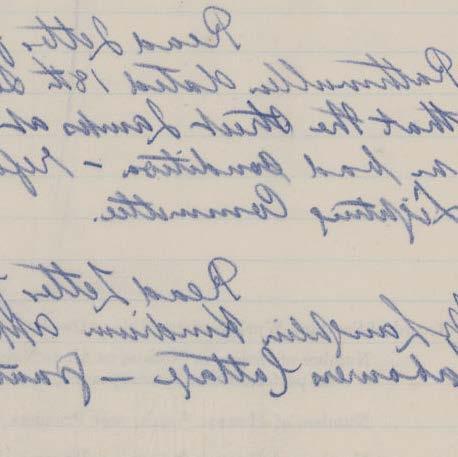 Read Letter
Rathmullen dated 18th
that the Street Lamps
in bad condition - refe
Lighting Committee.
Read Letter
Laughlin, Kindrum app
Cottage -